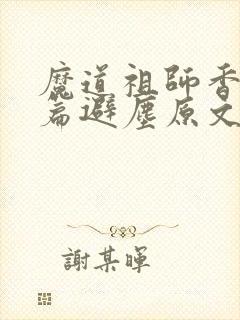 魔道祖師香
篇避塵原文
謝某暉